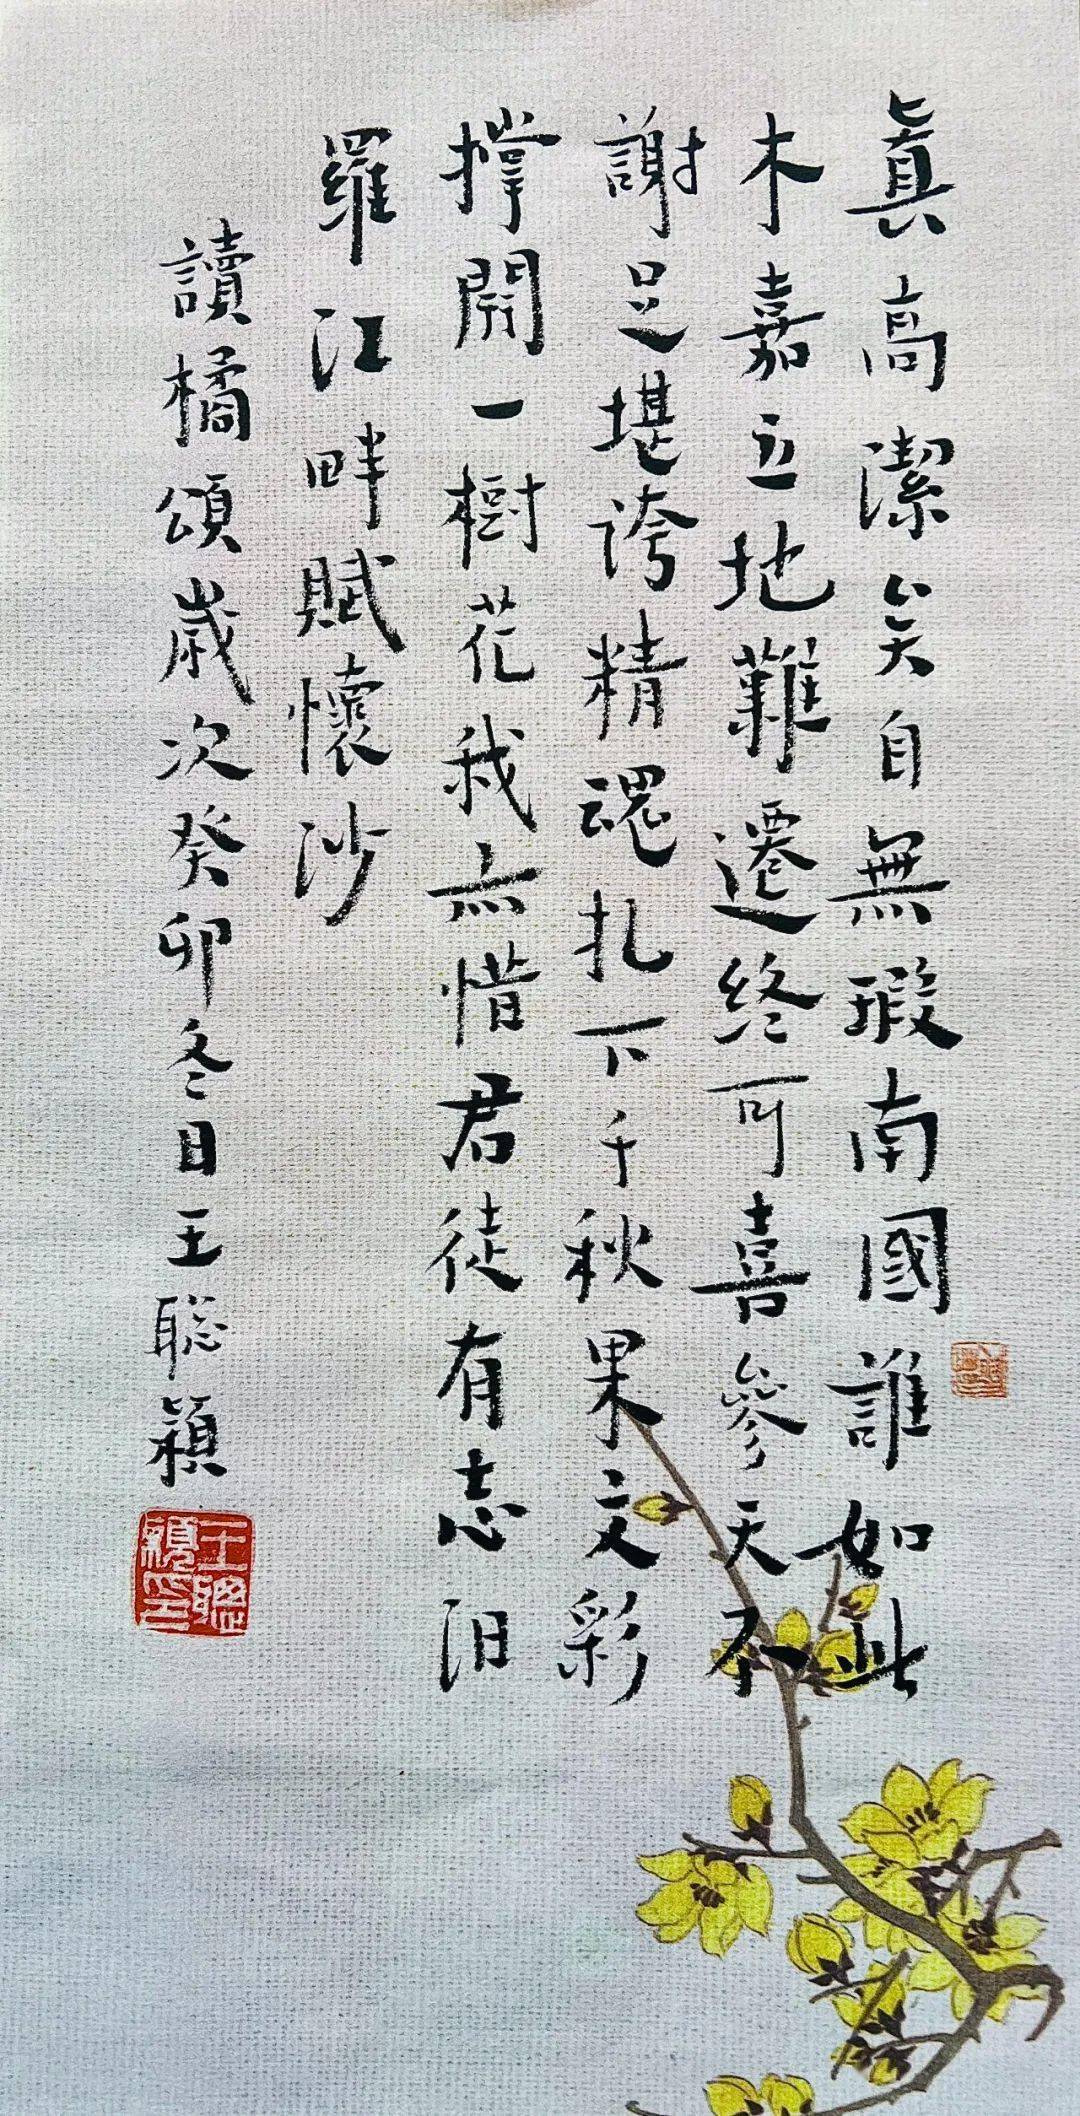 眞高潔矣自無瑕南國誰如此
木嘉立地難遷終可喜參天不
謝足堪誇精魂扎下千秋果文彩
撐開一樹花我亦惜君徒有志汨
羅江畔賦懷沙
讀橘頌歲次癸卯冬日王聰穎
王聰穎印